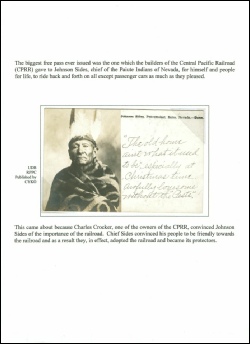 The biggest free pass ever issued was the one which the builders of the Central Pacific Railroad
(CPRR) gave to Johnson Sides, chief of the Paiute Indians of Nevada, for himself and people
for life, to ride back and forth on all except passenger cars as much as they pleased.
Johnson Sides, Peacemaker, Reno, Nevada.
"The old home
aint what it used
to be, especially at
Christmas time
Awfully lonesome
without the
UDB
RPPC
Published by
CYKO
This came about because Charles Crocker, one of the owners of the CPRR, convinced Johnson
Sides of the importance of the railroad. Chief Sides convinced his people to be friendly towards
the railroad and as a result they, in effect, adopted the railroad and became its protectors.